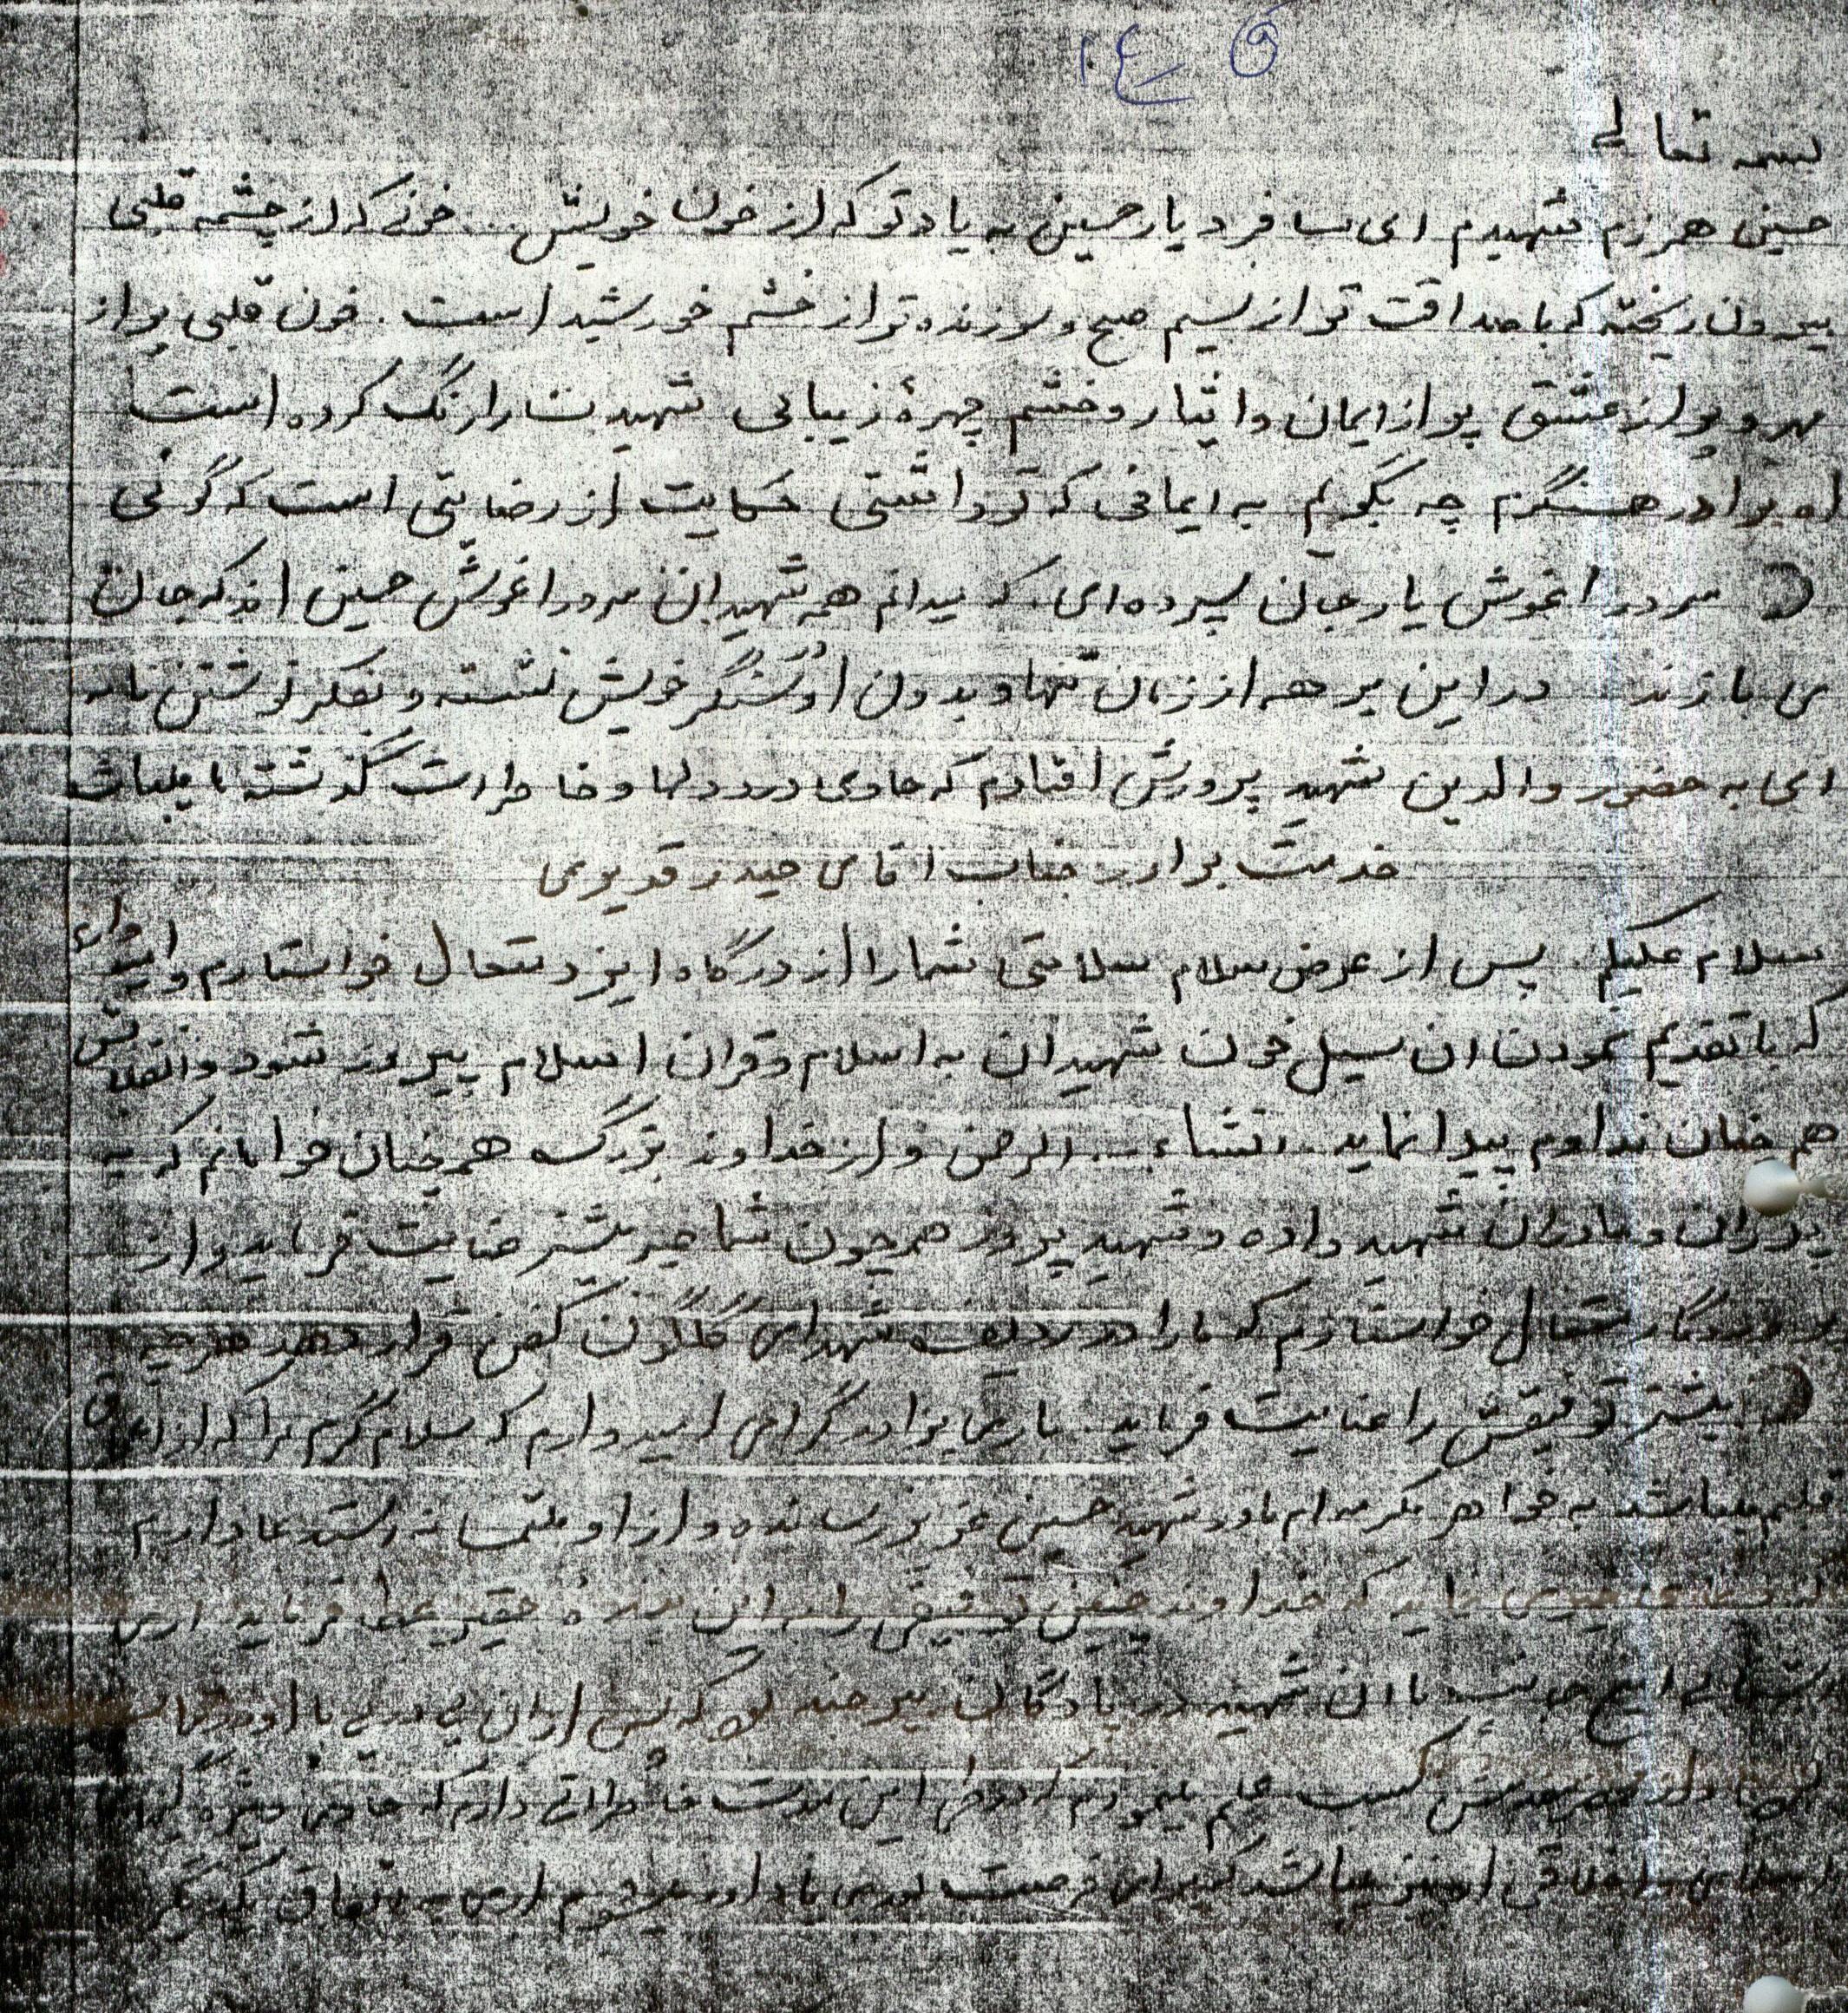 ۱۴ ۵
بسمه تعالی
حسین همرزم شهیدم ای مسافر دیار حسین به یاد تو که از خون خویش .. خونی که از چشمه قلبی
بیرون ریخته که با صداقت تر از نسیم صبح و سوزنده تر از خشم خورشید است . خون قلبی پر از
مهر و پر از عشق پر از ایمان و ایثار و خشم چهرهٔ زیبایی شهیدت را رنگ کرده است
ای برادر همسنگرم چه بگویم به ایمانی که تو داشتی حکایت از رضایتی است که گوئی
سر در اغوش یار جان سپرده ای که میدانم همه شهیدان سر در اغوش حسین اند که جان
می بازند در این برهه از زمان تنها و بدون او در سنگر خویش نشسته و بفکر نوشتن نامه
ای به حضور والدین شهید پرورش افتادم که حاوی درد دلها و خاطرات گذشته ما میباشد
خدمت برادر جناب اقای حیدر قدیری
سلام علیکم . پس از عرض سلام سلامتی شما را از درگاه ایزد متعال خواستارم و امیدوارم
که با تقدیم نمودن ان سیل خون شهیدان به اسلام و قران اسلام پیروز شود و انقلابش
هم چنان تداوم پیدا نماید . انشاء ... الرحمن و از خداوند بزرگ هم چنان خواهانم که به
پدران و مادران شهید داده و شهید پرور همچون شما صبر بیشتر عنایت فرماید و از
پروردگار متعال خواستارم که ما را در ردیف شهدای گلگون کفن قرار دهد هر چه
بیشتر توفیقش را عنایت فرماید . باری برادر گرامی امیدوارم که سلام گرم مرا که از اعماق
قلبم میباشد به خواهر مکرمه ام مادر شهید حسین عزیز رسانده و از او ملتمسانه استدعا دارم
که خداوند چنین توفیقی را به این بنده حقیر عطا فرماید اری
با ان شهید در پادگان بیرجند بود که پس از ان پی در پی با او
کسب علم مینمودم که در طی این مدت خاطراتی دارم که حاوی
اسلامی اخلاقی